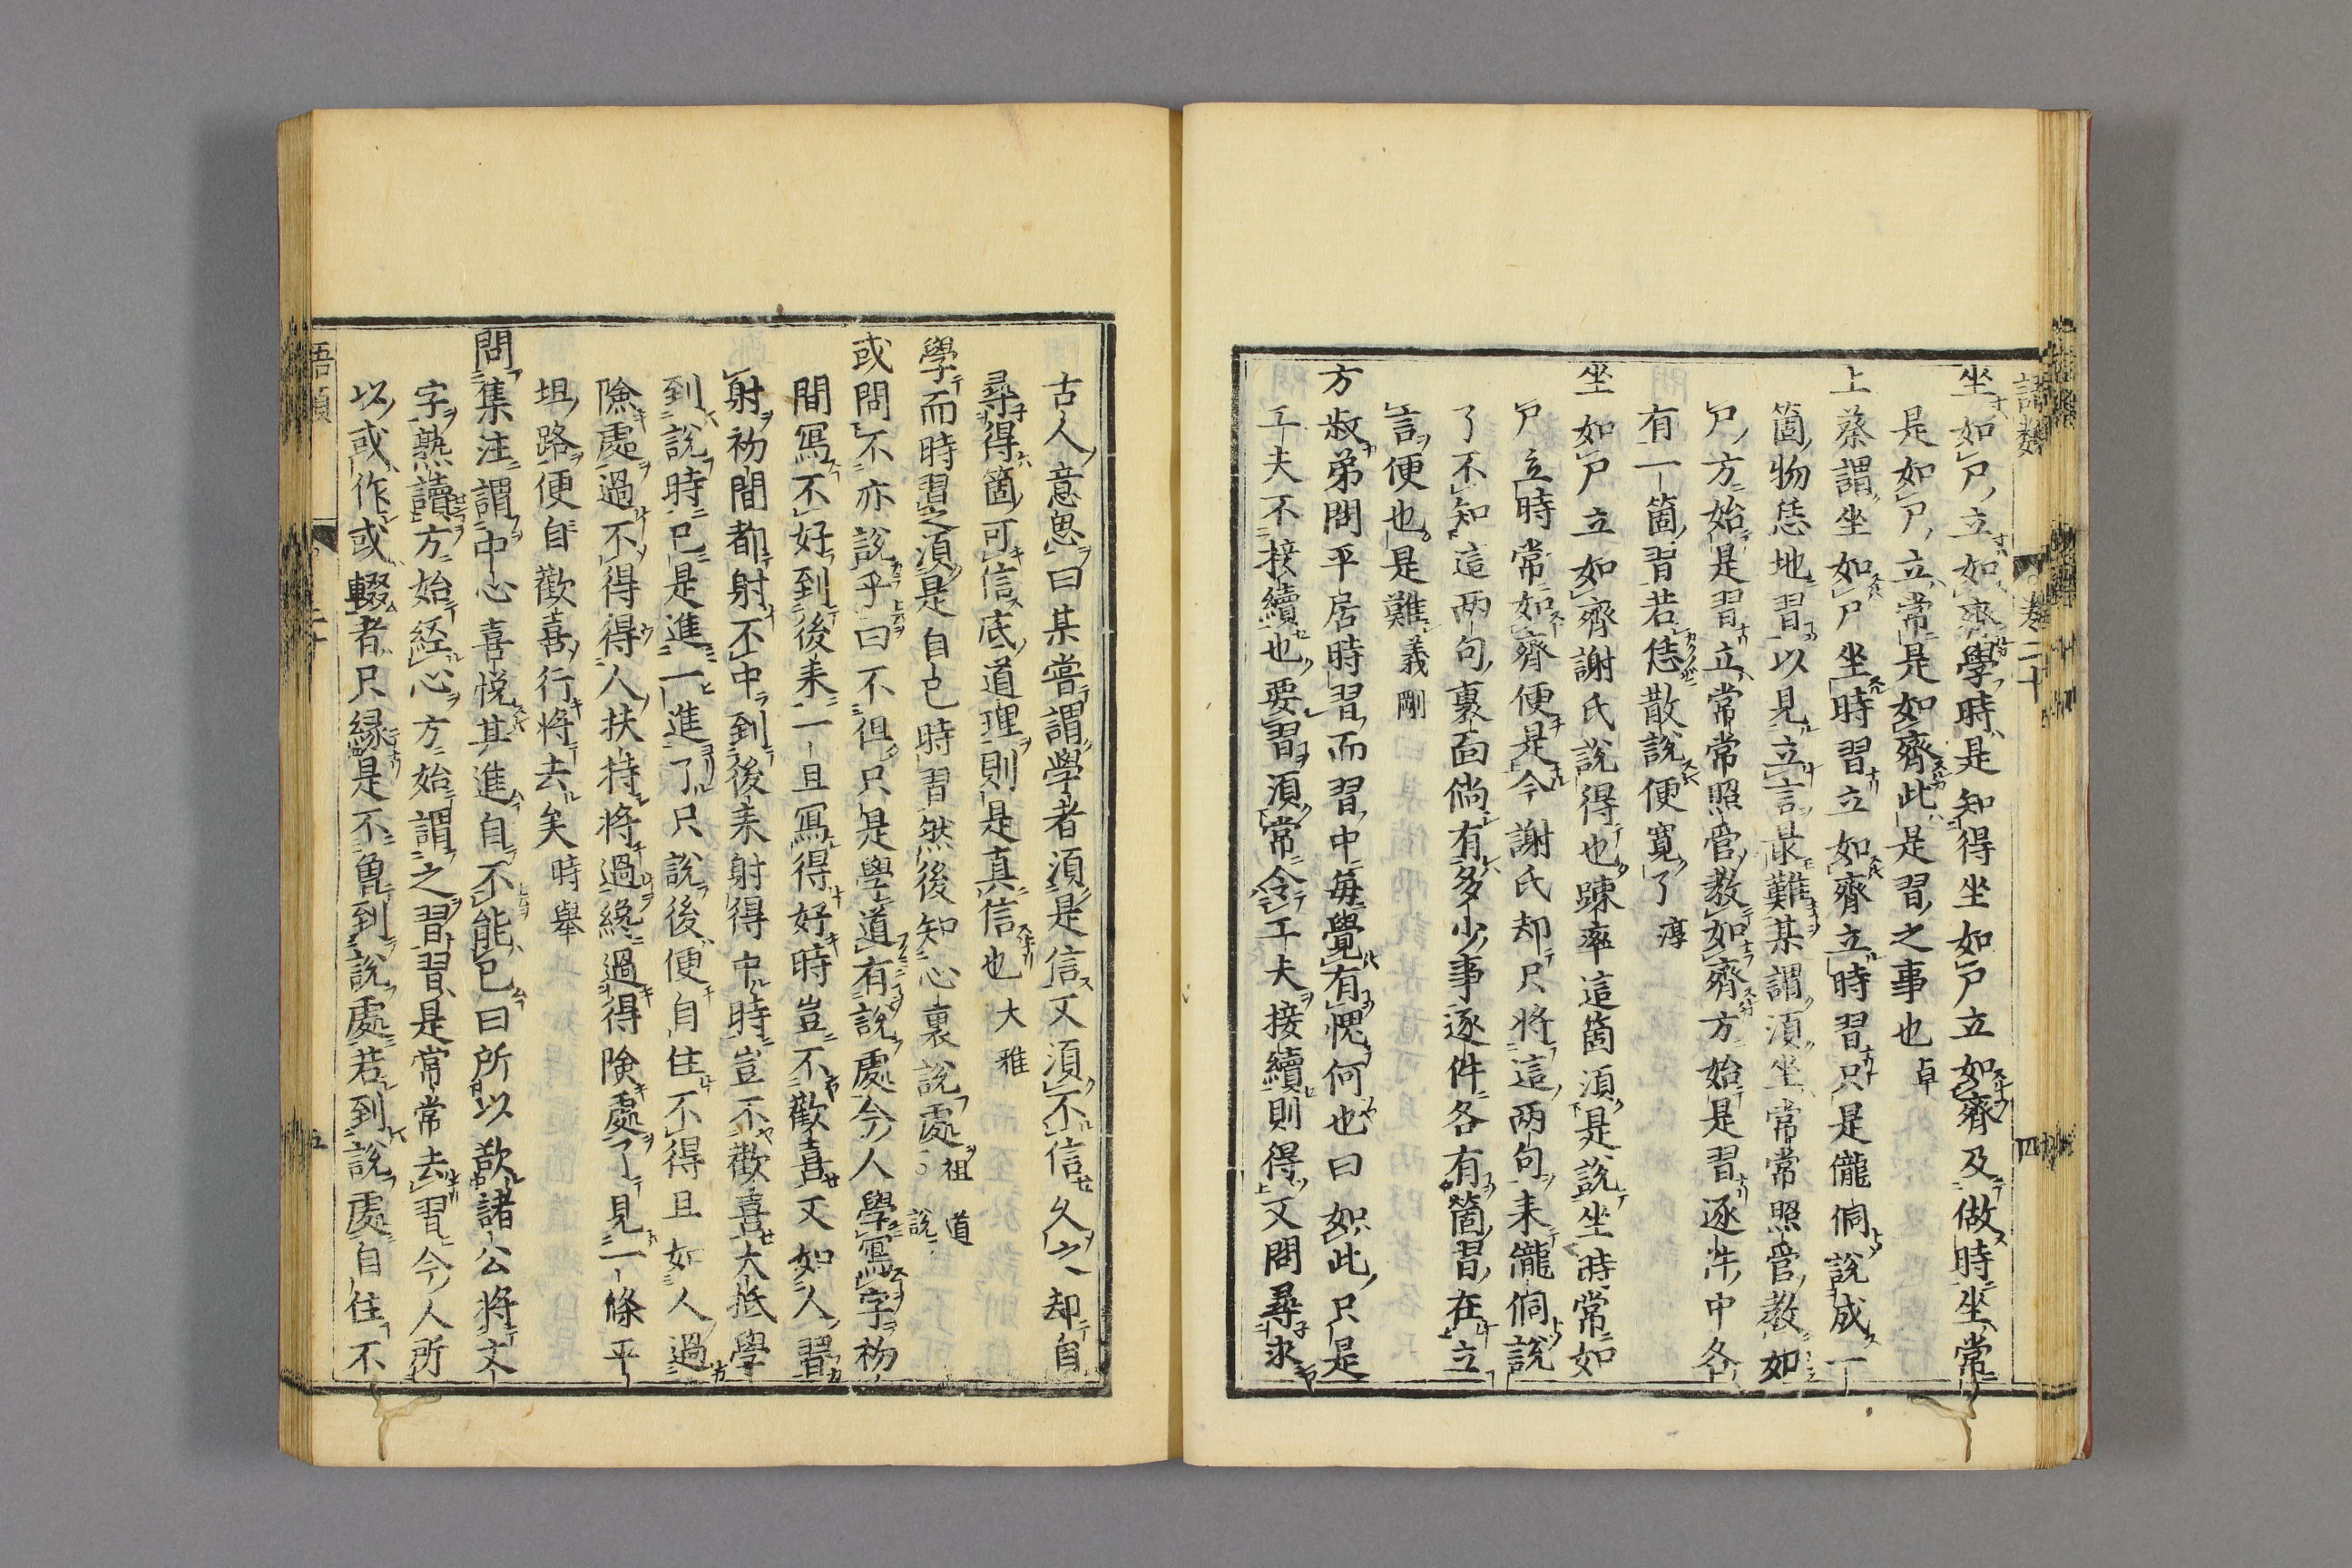 語類 卷二十 四
坐如尸立如齊學時是知得坐如尸立如齊及做時坐常
是如尸立常是如齊此是習之事也 卓
上蔡謂坐如尸坐時習立如齊立時習只是儱侗說成一
箇物恁地習以見立言最難某謂須坐常常照管教如
尸方始是習立常常照管教如齊方始是習逐件中各
有一箇習若恁散說便寬了 淳
坐如尸立如齊謝氏說得也踈率這箇須是說坐時常如
尸立時常如齊便是今謝氏却只將這兩句来儱侗說
了不知這兩句裏面尚有多少事逐件各有箇習在立
言便也是難 義剛
方叔弟問平居時習而習中每覺有愧何也曰如此只是
工夫不接續也要習須常令工夫接續則得又問尋求
古人意思曰某嘗謂學者須是信又須不信久之却自
尋得箇可信底道理則是真信也 大雅
學而時習之須是自已時習然後知心裏說處 祖道 說
或問不亦說乎曰不但只是學道有說處今人學寫字初
間寫不好到後来一旦寫得好時豈不歡喜又如人習
射初間都射不中到後来射得中時豈不歡喜大抵學
到說時已是進一進了只說後便自住不得且如人過
險處過不得得人扶持將過纔過得險處了見一條平
坦路便自歡喜行將去矣 時舉
問集注謂中心喜悅其進自不能已曰所以欲諸公將文
字熟讀方始經心方始謂之習習是常常去習今人所
以或作或輟者只緣是不曾到說處若到說處自住不
語類 二十 五